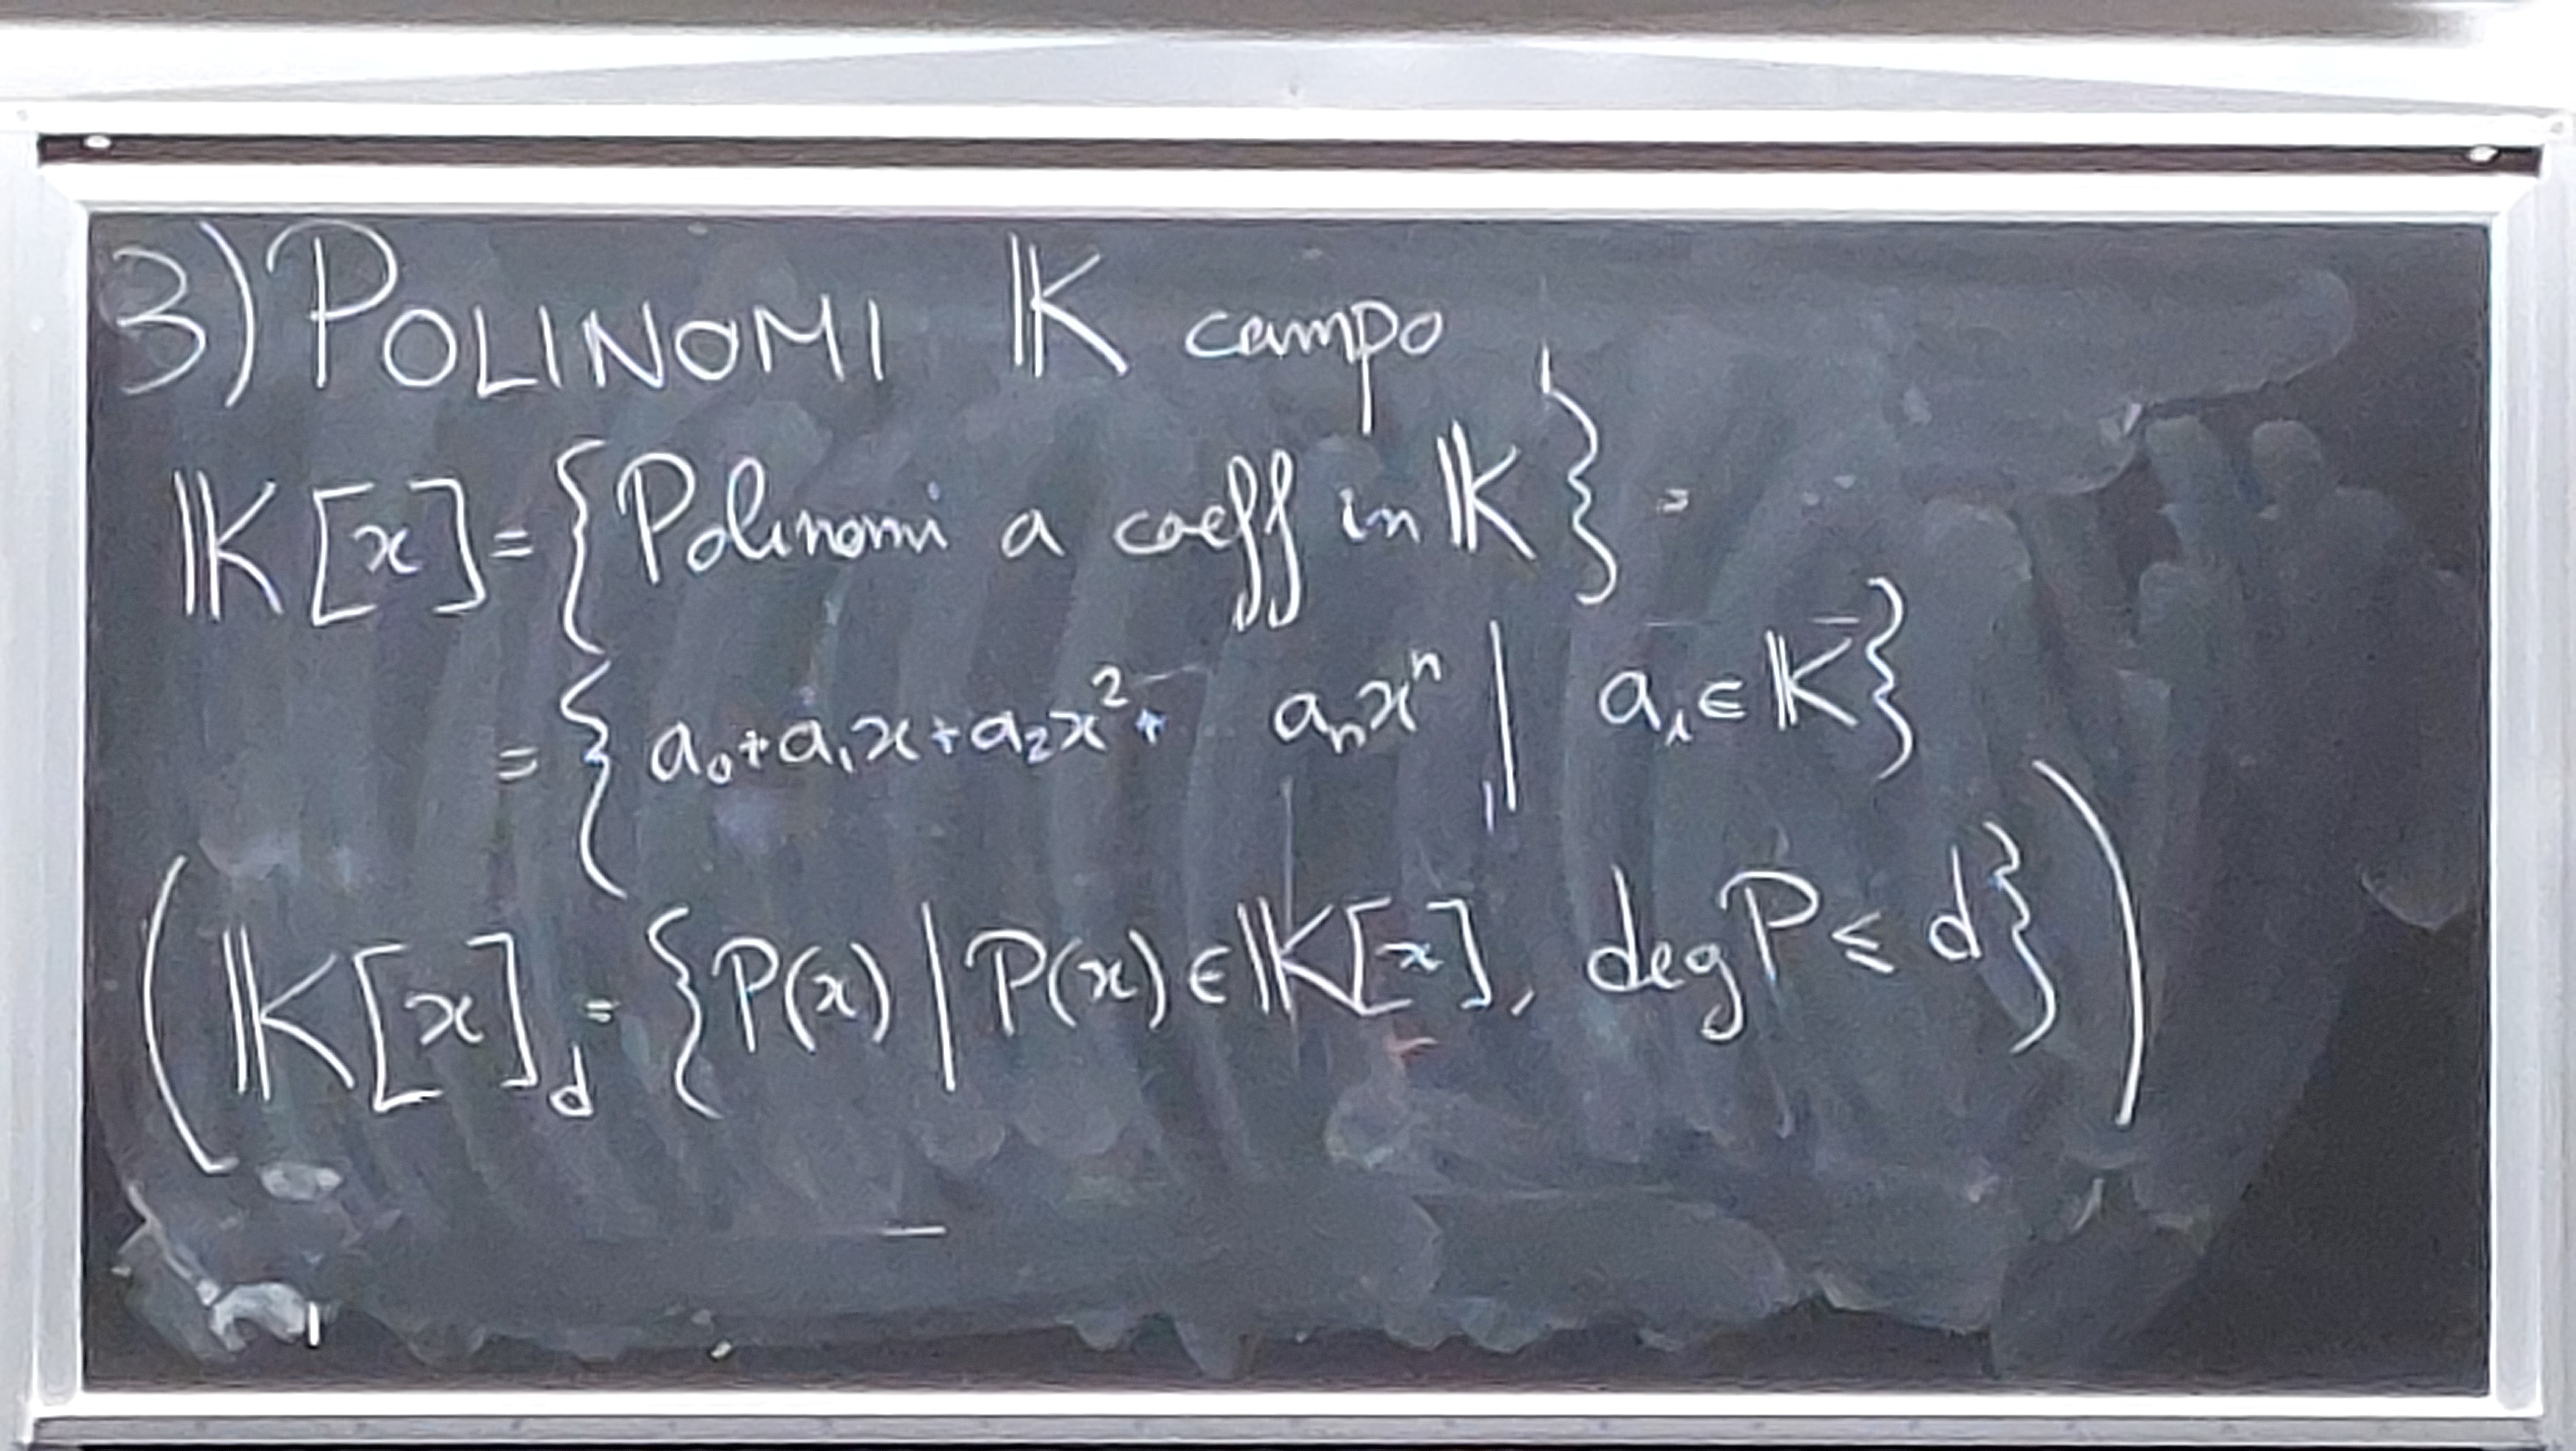 3) POLINOMI 𝕂 campo
𝕂[x] = {Polinomi a coeff in 𝕂} =
= {a₀+a₁x+a₂x²+ .. aₙxⁿ | aᵢ ∈ 𝕂}
(𝕂[x]_d = {P(x) | P(x) ∈ 𝕂[x], deg P ≤ d})